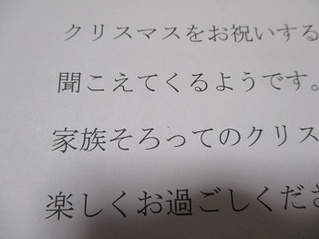 クリスマスをお祝いする
聞こえてくるようです。
家族そろってのクリス
楽しくお過ごしくださ